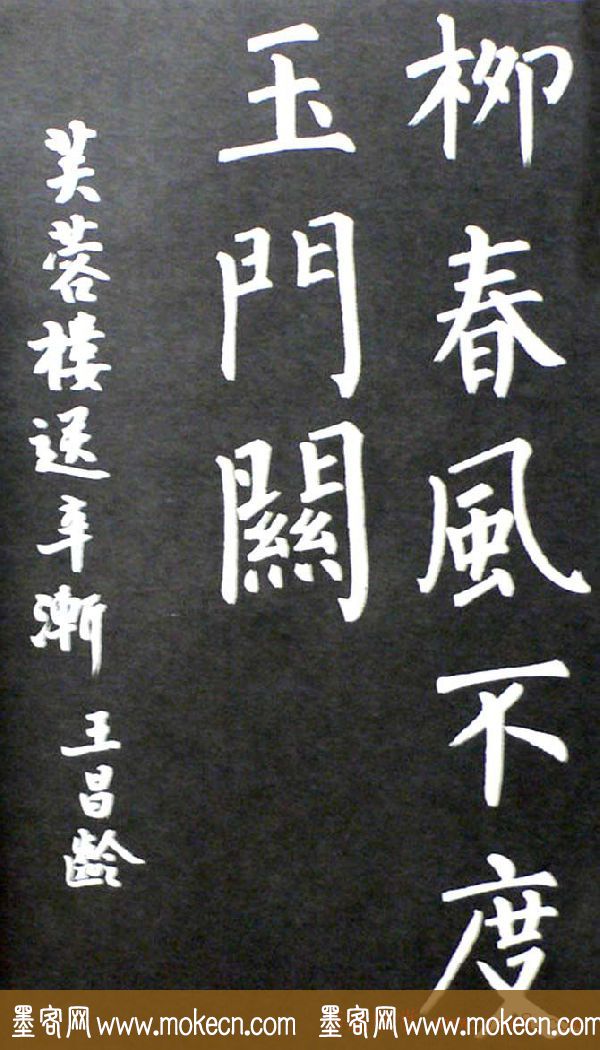 柳春風不度
玉門關
芙蓉樓送辛漸
王昌齡
墨客网 www.mokecn.com 墨客网 www.mokecn.com